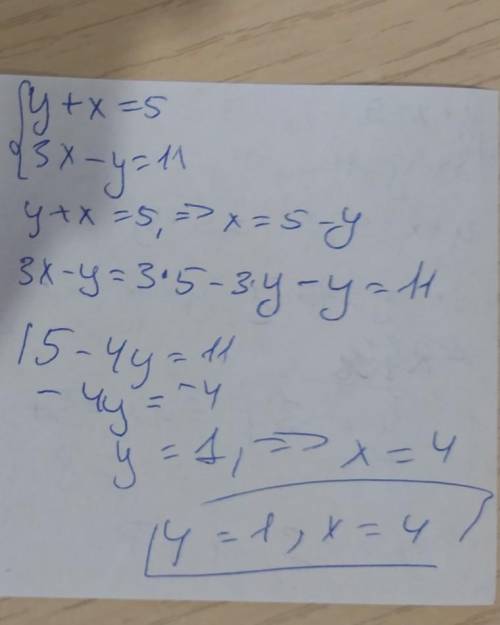 {y + x = 5
3x - y = 11
y + x = 5, => x = 5 - y
3x - y = 3·5 - 3·y - y = 11
15 - 4y = 11
- 4y = -4
y = 1, => x = 4
y = 1, x = 4